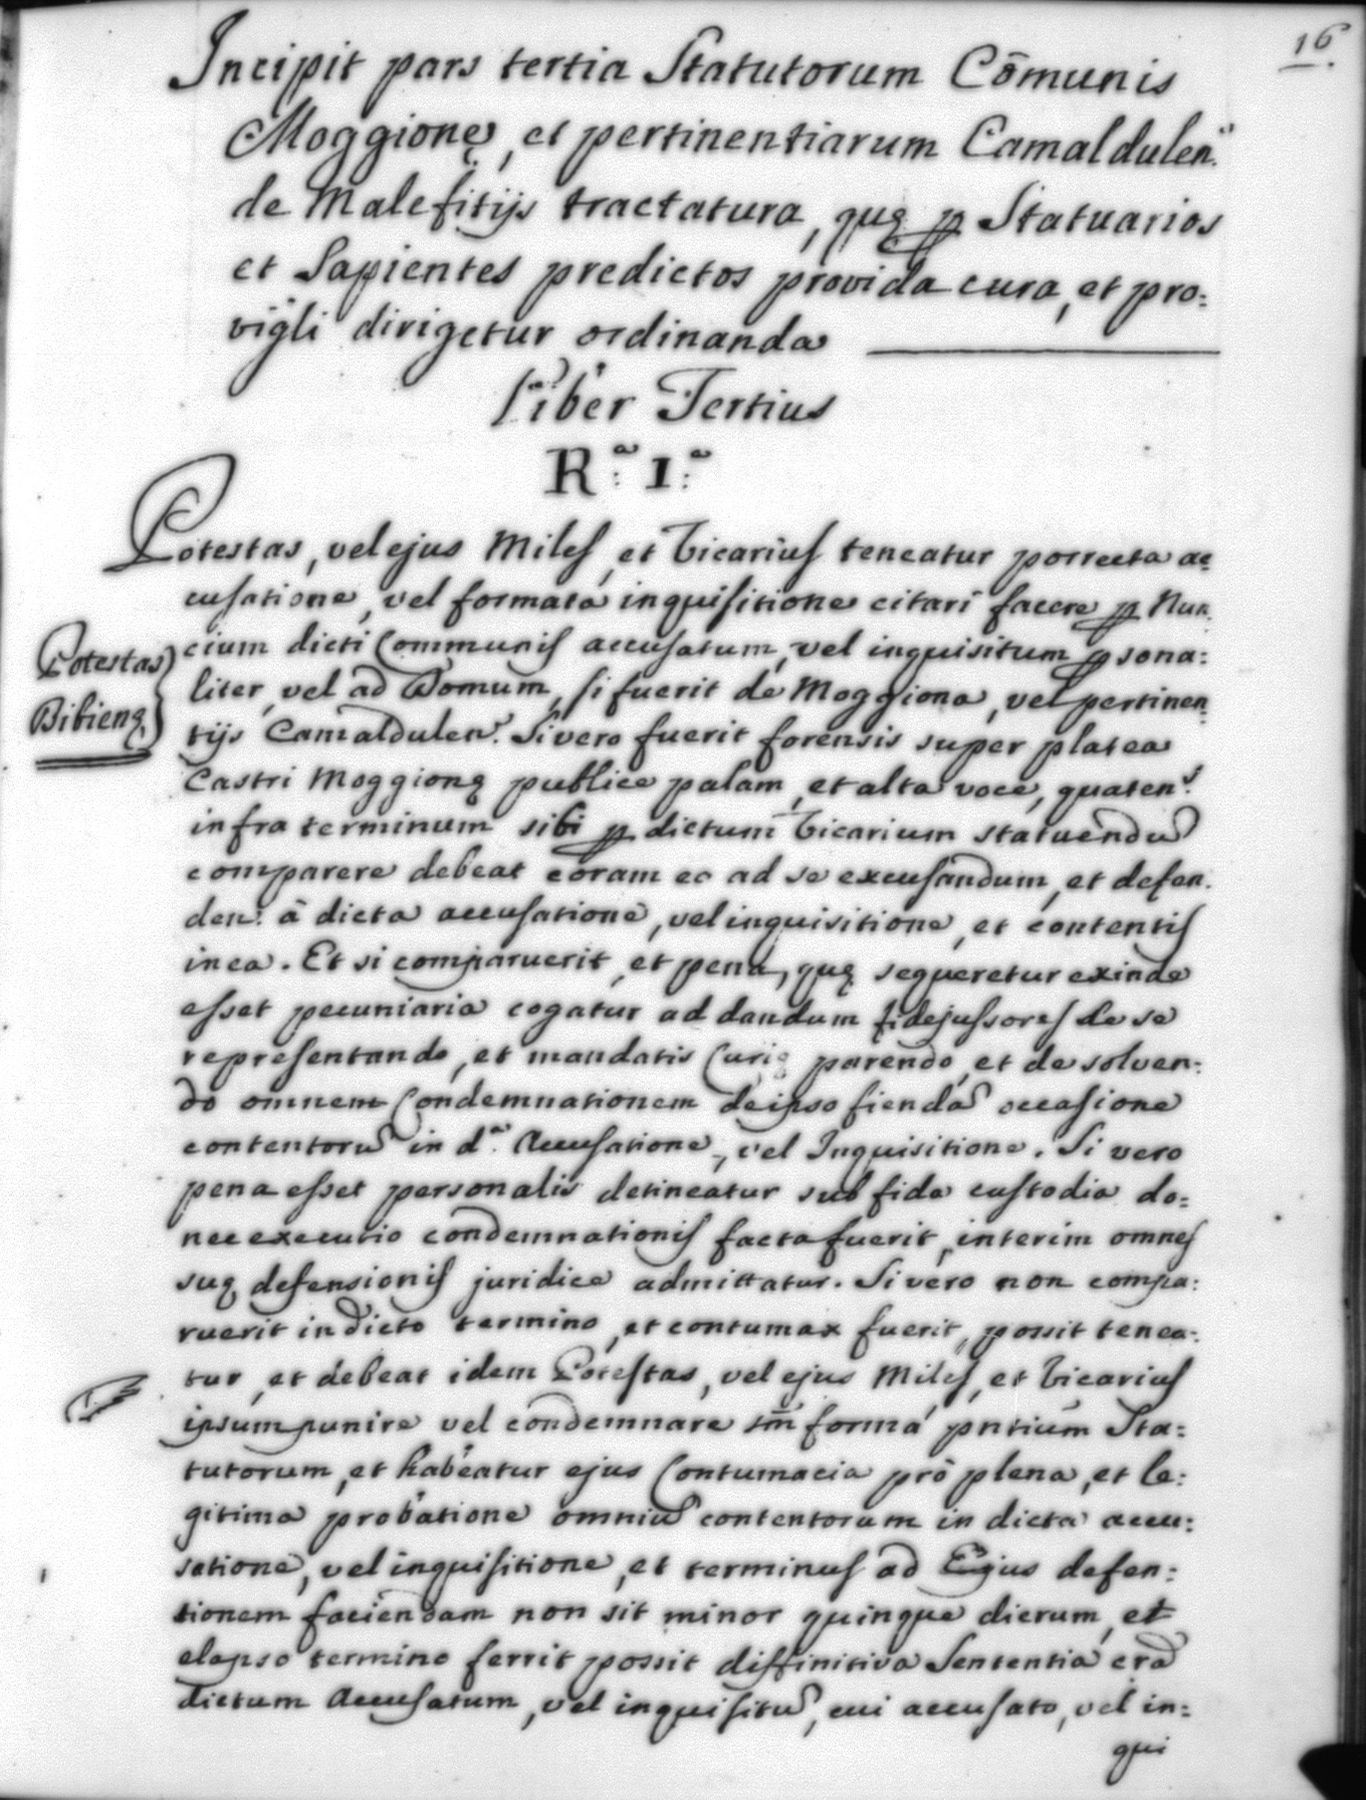 16.
Incipit pars tertia Statutorum Cōmunis
Moggionę, et pertinentiarum Camaldulen.
de Malefitijs tractatura, quę p Statuarios
et Sapientes predictos provida cura, et pro:
vigli dirigetur ordinanda
Liber Tertius
R.ª 1.ª
Potestas, vel ejus Miles, et Vicarius teneatur porrecta ac:
cusatione, vel formata inquisitione citari facere p Nun:
cium dicti Communis accusatum, vel inquisitum psona:
Potestas
liter, vel ad Domum, si fuerit de Moggiona, vel pertinen:
Bibienę
tijs Camaldulen. Si vero fuerit forensis super platea
Castri Moggionę publice palam, et alta voce, quaten.s
infra terminum sibi p dictum Vicarium statuendū
comparere debeat coram eo ad se excusandum, et defen:
den. à dicta accusatione, vel inquisitione, et contentis
in ea. Et si comparuerit, et pena, quę sequeretur exinde
esset pecuniaria cogatur ad dandum fidejussores de se
representando, et mandatis Curię parendo, et de solven:
do omnem Condemnationem de ipso fiendā occasione
contentorū in d.ª Accusatione, vel Inquisitione. Si vero
pena esset personalis detineatur sub fida custodia do:
nec executio condemnationis facta fuerit, interim omnes
suę defensionis juridice admittatur. Si vero non compa:
ruerit in dicto termino, et contumax fuerit, possit tenea:
tur, et debeat idem Potestas, vel ejus Miles, et Vicarius
ipsum punire vel condemnare sm̄ formā pntium Sta:
tutorum, et habeatur ejus Contumacia prò plena, et le:
gitima probatione omniū contentorum in dicta accu:
satione, vel inquisitione, et terminus ad Ejus defen:
tionem faciendam non sit minor quinque dierum, et
elapso termino ferrit possit diffinitiva Sententia crā
dictum Accusatum, vel inquisitū, cui accusato, vel in:
qui